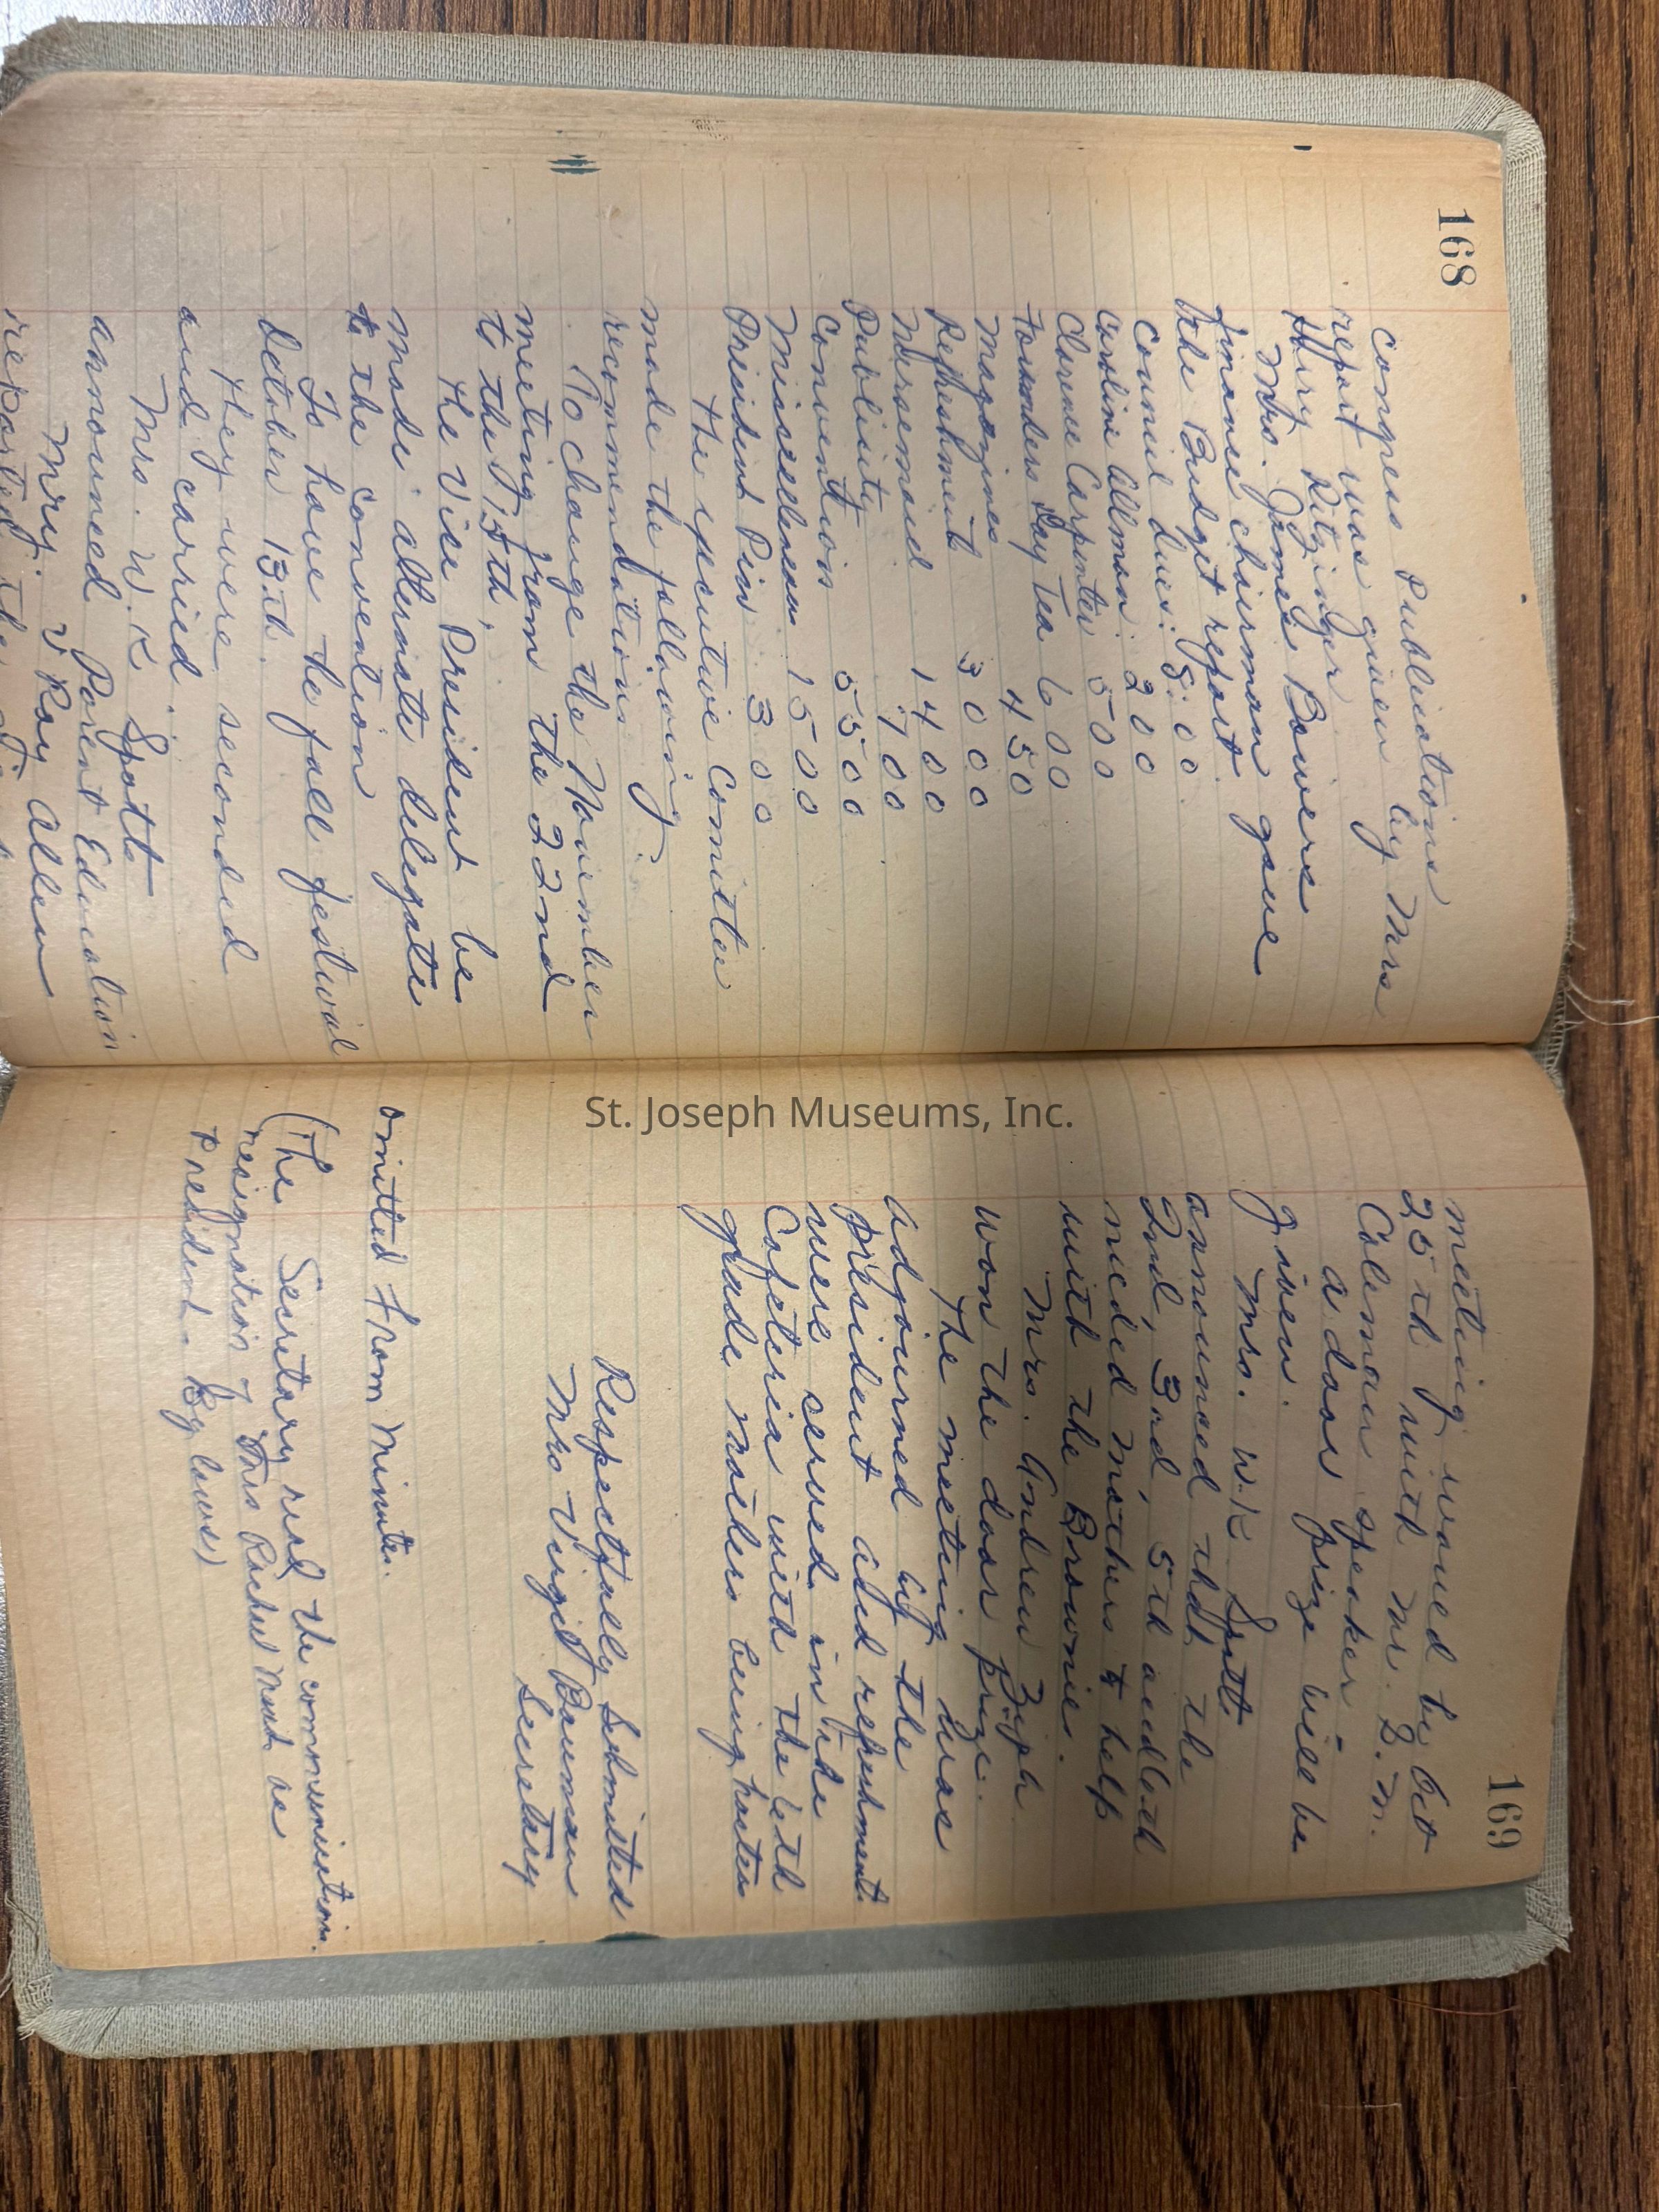 168
Congress Publications
report was given by Mrs
Harry Ritzinger
Mrs. James Bowers
finance chairman gave
the Budget report.
Council dues: 5.00
Caroline Allman: 2 00
Clarence Carpenter 5 00
Founders Day Tea 6 00
Magazines 4 50
Refreshment 30 00
Nursemaid 14 00
Publicity 7 00
Convention 55 00
Miscellenean 15 00
President Pin 3 00
The executive Comittee
made the following
recommendations
To change the November
meeting from the 22nd
to the 15th.
The Vice President be
made alternate delegate
to the convention
To have the fall festival
October 13th.
They were seconded
and carried.
Mrs. W. K. Spotts
announced Parent Education
Mrs. V Ray Allen
reported the
169
meeting would be Oct
25th with Mr. S. M.
Coleman speaker
A door prize will be
given.
Mrs. W. K Spotts
announced that the
2nd, 3rd, 5th and 6th
needed mothers to help
with the Brownies.
Mrs. Andrew Ziph
won the door prize.
The meeting was
adgourned by the
president and refreshments
were cerved in the
Cafeteria with the 6th
grade mothers being hostess
Respectfully Submitted
Mrs Virgil Bauman
Secretary
omitted from Minutes.
(The Secretary read the communication.
resignation of Mrs Rachel Mush as
President. By laws)
St. Joseph Museums, Inc.